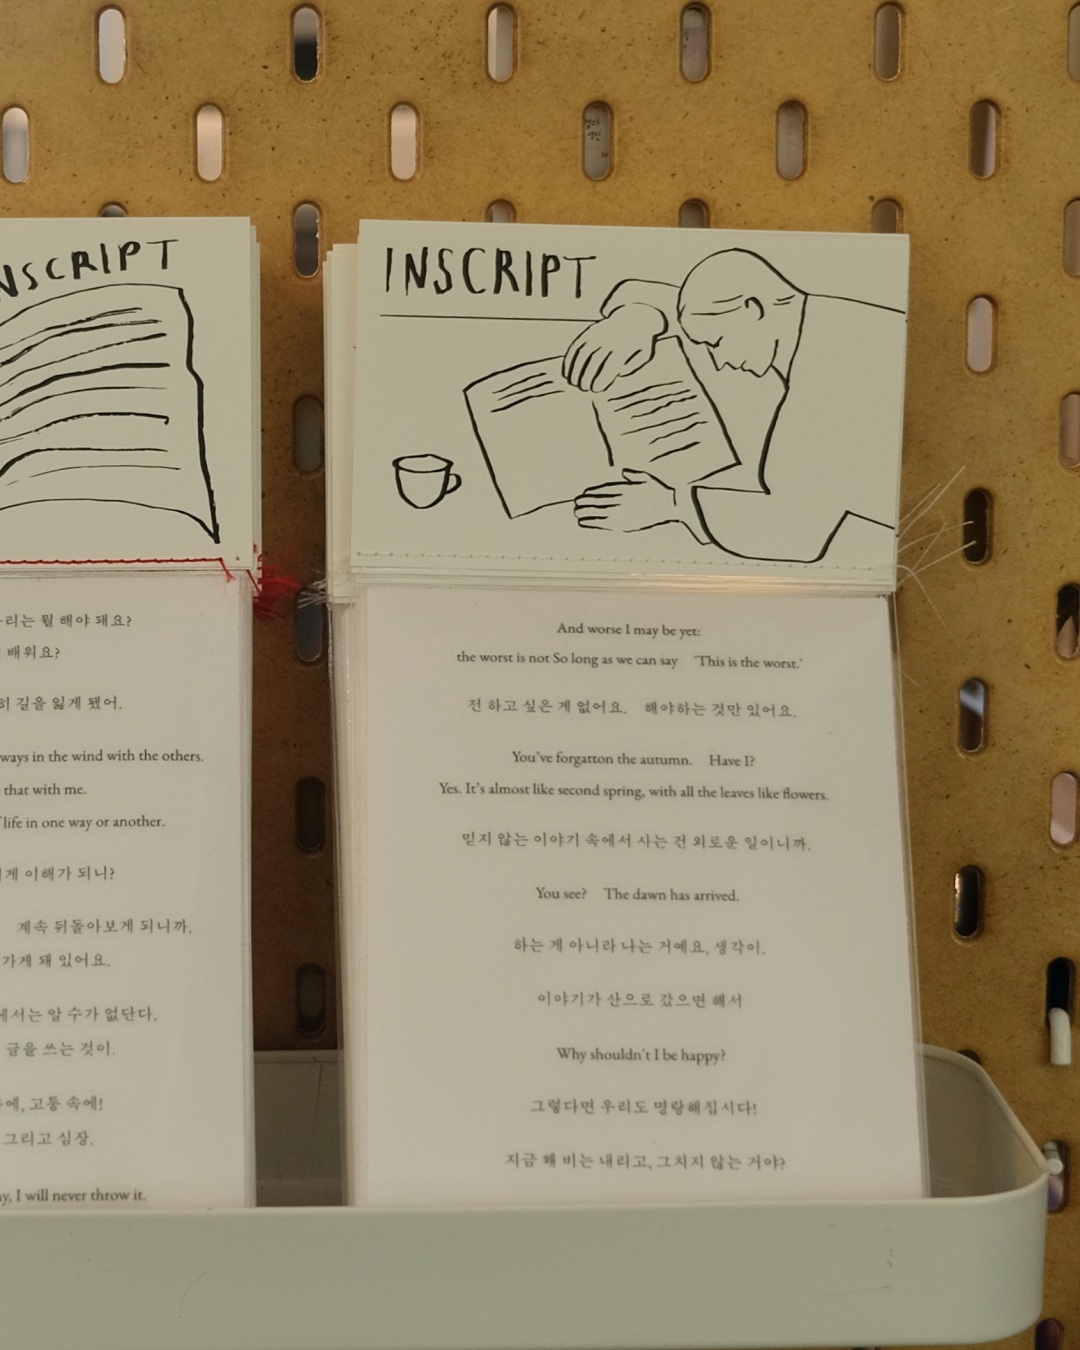 INSCRIPT
뭘 해야 돼요?
배워요?
길을 잃게 됐어.
ways in the wind with the others.
that with me.
life in one way or another.
이해가 되니?
계속 뒤돌아보게 되니까.
가게 돼 있어요.
에서는 알 수가 없단다.
글을 쓰는 것이.
에, 고통 속에!
그리고 심장.
I will never throw it.
INSCRIPT
And worse I may be yet:
the worst is not So long as we can say 'This is the worst.'
전 하고 싶은 게 없어요. 해야하는 것만 있어요.
You've forgatton the autumn. Have I?
Yes. It's almost like second spring, with all the leaves like flowers.
믿지 않는 이야기 속에서 사는 건 외로운 일이니까.
You see? The dawn has arrived.
하는 게 아니라 나는 거예요, 생각이.
이야기가 산으로 갔으면 해서
Why shouldn't I be happy?
그렇다면 우리도 명랑해집시다!
지금 왜 비는 내리고, 그치지 않는 거야?